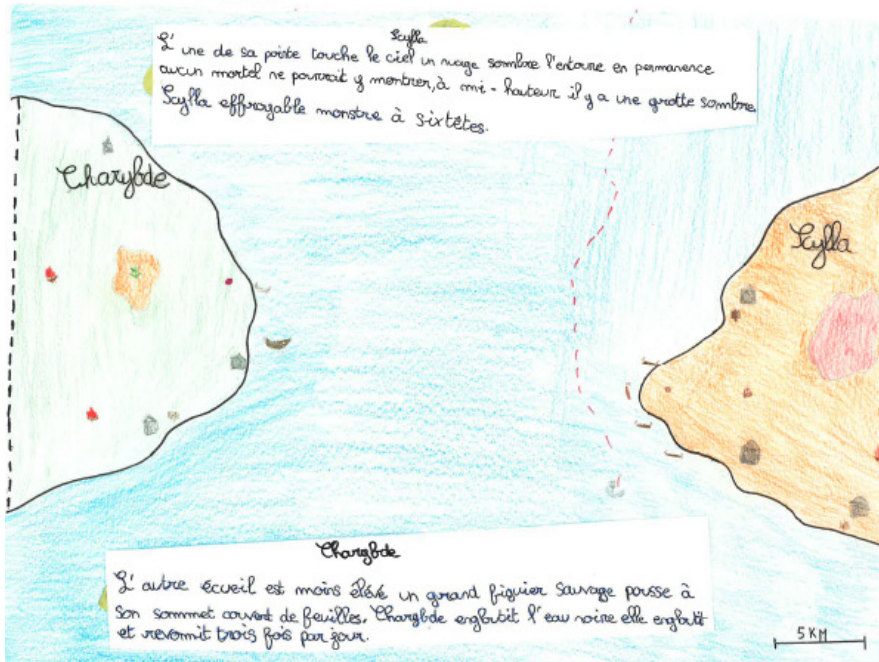 Scylla
L'une de sa pointe touche le ciel un nuage sombre l'entoure en permanence
aucun mortel ne pourrait y montrer, à mi-hauteur il y a une grotte sombre
Scylla effroyable monstre à six têtes.
Charybde
Scylla
Charybde
L'autre écueil est moins élevé un grand figuier sauvage pousse à
son sommet couvert de feuilles. Charybde engloutit l'eau noire elle engloutit
et revomit trois fois par jour.
5 KM